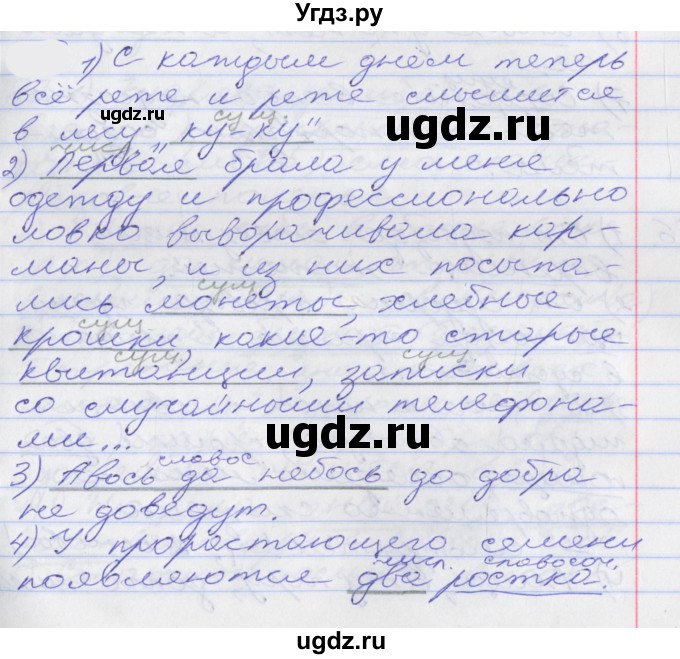 Угдз.ру
1) С каждым днём теперь
всё реже и реже слышится
сущ.
в лесу „ку-ку"
числ.
2) Первая брала у меня
одежду и профессионально
ловко выворачивала кар-
маны, и из них посыпа-
сущ
лись монеты, хлебные
сущ
крошки, какие-то старые
сущ. сущ
квитанции, записки
со случайными телефона-
ми...
словос.
3) Авось да небось до добра
не доведут.
4) У прорастающего семени
числ. словосоч.
появляются два ростка.
ugdz.ru
ugdz.ru
ugdz.ru
ugdz.ru
ugdz.ru
ugdz.ru
ugdz.ru